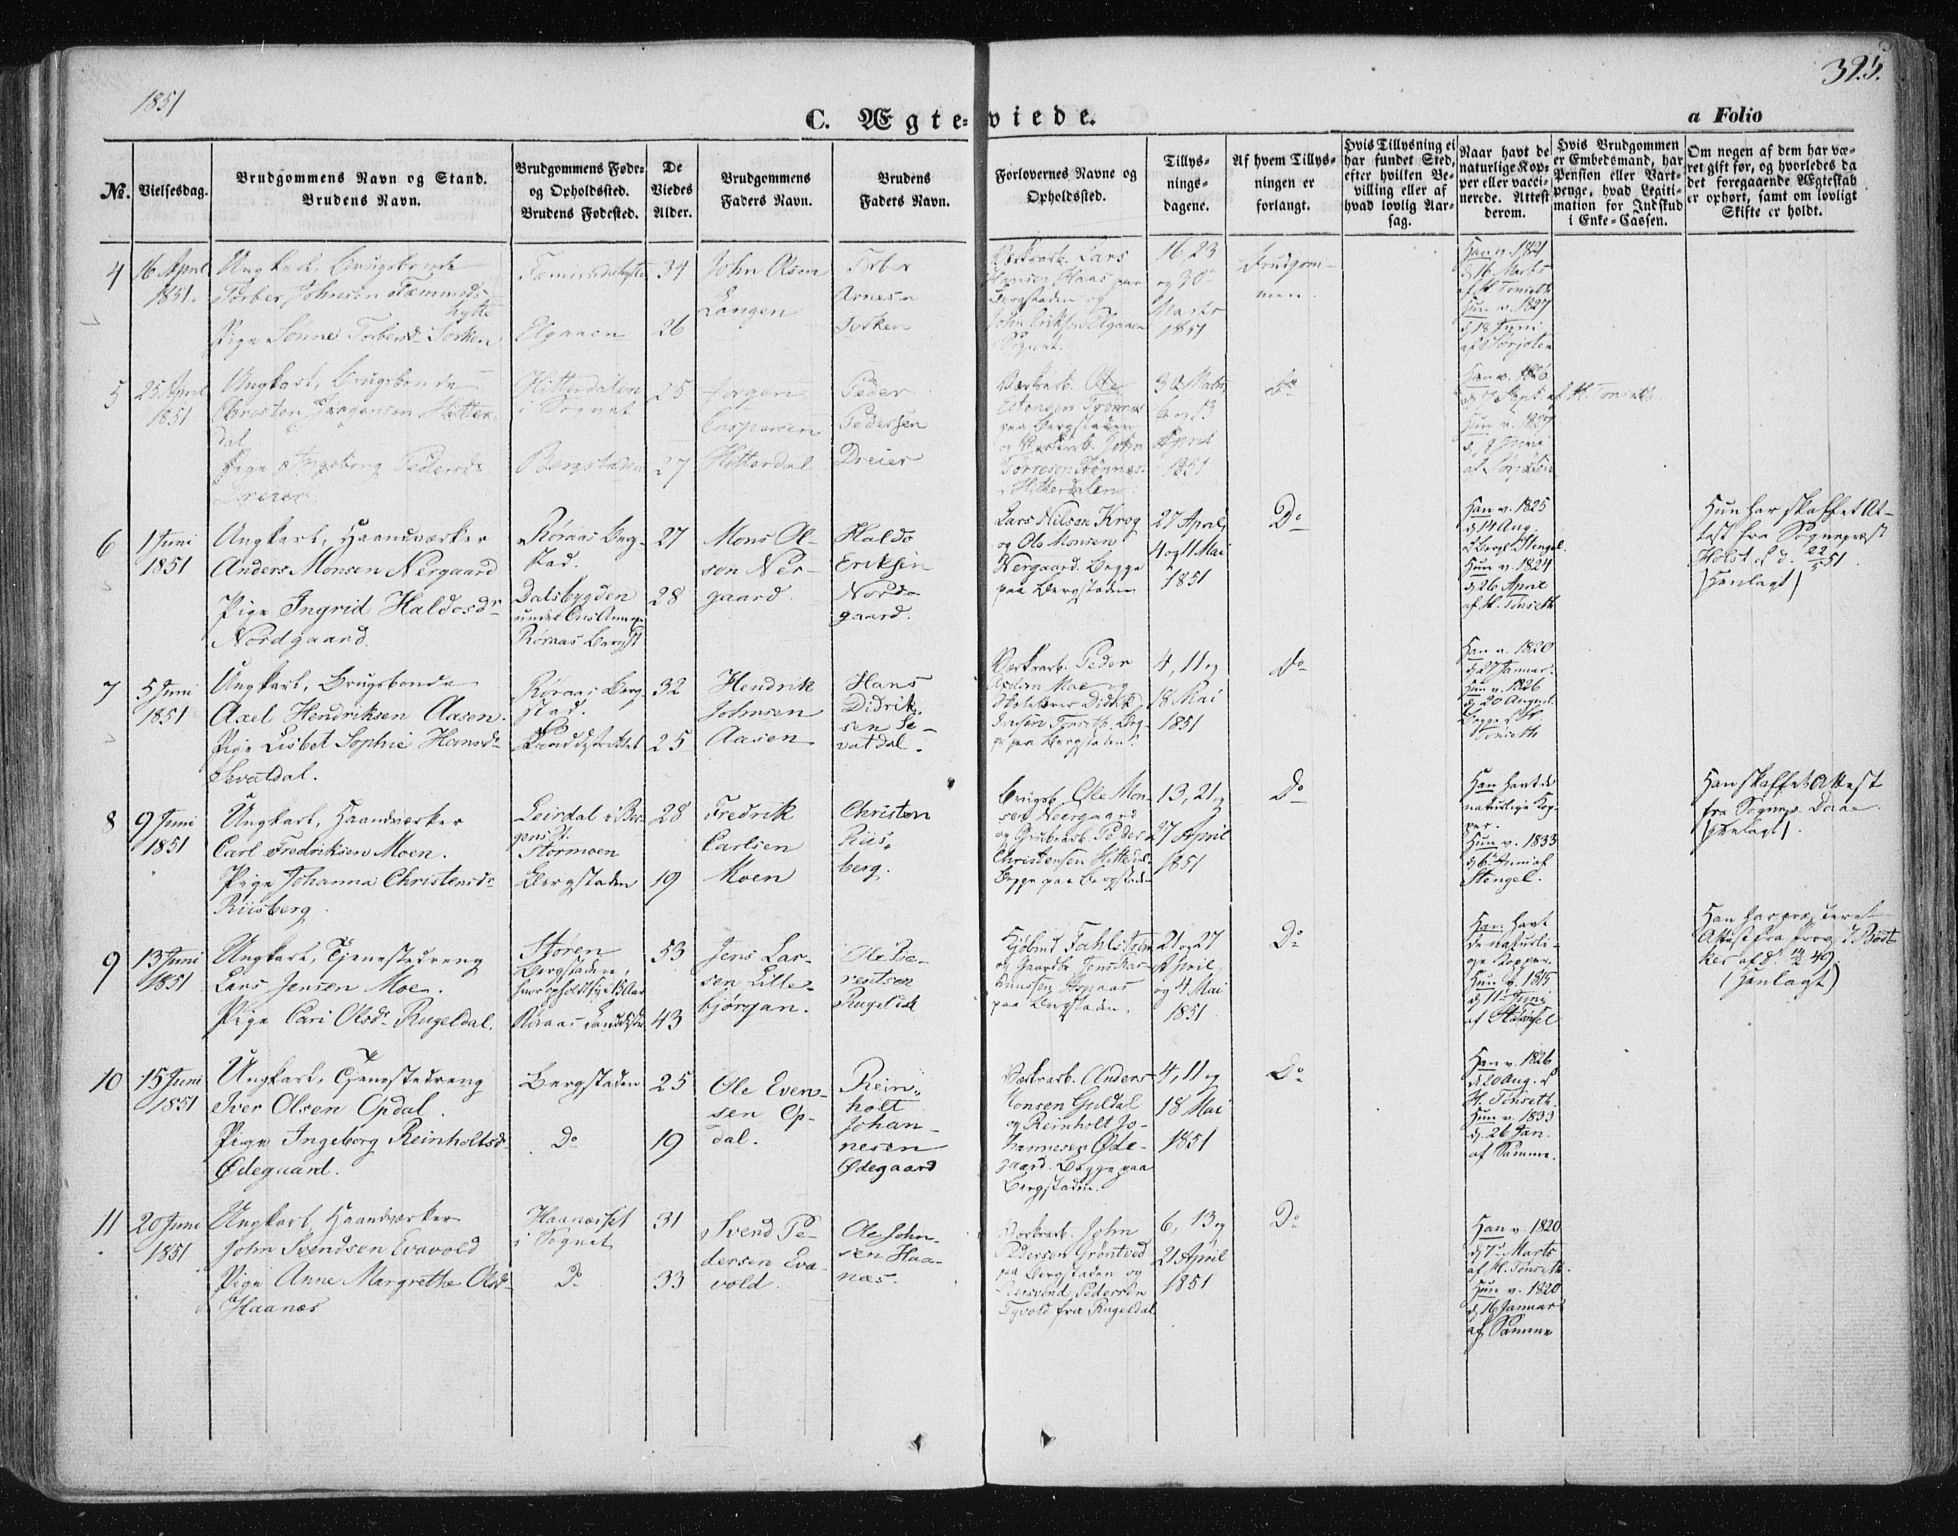 1851
325.
C. Ægte-viede.
a Folio
No.
Vielsesdag.
Brudgommens Navn og Stand.
Brudens Navn.
Brudgommens Føde-
og Opholdssted.
Brudens Fødested.
De
Viedes
Alder.
Brudgommens
Faders Navn.
Brudens
Faders Navn.
Forlovernes Navne og
Opholdssted.
Tillys-
nings-
dagene.
Af hvem Tillys-
ningen er
forlangt.
Hvis Tillysning ei
har fundet Sted,
efter hvilken Be-
villing eller af
hvad lovlig Aar-
sag.
Naar havt de
naturlige Kop-
per eller vacci-
nerede. Attest
derom.
Hvis Brudgommen
er Embedsmand, har
Pension eller Vart-
penge, hvad Legiti-
mation for Indskud
i Enke-Cassen.
Om nogen af dem har væ-
ret gift før, og hvorledes da
det foregaaende Ægteskab
er ophørt, samt om lovligt
Skifte er holdt.
4
16 April
1851.
Ungkarl, Brugsbonde
Torber Johnsen Fæmunds-
hytte
Pige Sønne Torbersd. Torken
Fæmundshytte
Elgaaen
34
26
John Olsen
Langen
Torber
Arnesen
Torken
Værkarb. Lars
Haas paa
Bergstaden og
John Eriksen Elgaaen
Sognet.
16, 23
og 30
Marts
1851
Brudgom-
men.
Han v. 1821
d. 16 Marts
af H. Tønseth
Hun v. 1827
d. 18 Juni
af
5
25 April
1851
Ungkarl, Brugsbonde
Christen Jørgensen Hitter-
dal
Pige Ingeborg Pedersd.
Dreier.
Hitterdalen
i Sognet
Bergstaden
25
27
Jørgen
Caspersen
Hitterdal
Peder
Pedersen
Dreier
Værkarb. Ole
Estensen Trønnes
paa Bergstaden
og Værkarb. John
Torresen Trønnes
i Hitterdalen.
30 Marts
6 og 13
April
1851
Do
Han v. 1826
d. 7 Sept. af H. Tønseth
Hun v. 1827
6
1 Juni
1851
Ungkarl, Haandværker
Anders Monsen Nergaard
Pige Ingrid Haldosdr
Nordgaard.
Røraas Berg-
stad.
Dalsbygden
under
Røraas Bergst
27
28
Mons Ol-
sen Ner-
gaard.
Haldo
Eriksen
Nord-
gaard.
Lars Nilsen Krog
og Ole Monsen
Nergaard. Begge
paa Bergstaden
27 April,
4 og 11 Mai
1851
Do
Han v. 1825
d. 14 Aug.
Stengel.
Hun v. 1824
d. 26 April
af H. Tønseth
Hun har skaffet At-
test fra Sognepræst
Holst d. d. 22/5 51.
(Henlagt)
7
5 Juni
1851
Ungkarl, Brugsbonde
Axel Hendriksen Aasen.
Pige Lisbet Sophie Hansd-
Sevatdal.
Røraas Berg-
stad.
Do
Landdistriktet
32
25
Hendrik
Johnsen
Aasen
Hans
Didrik-
sen Se-
vatdal.
Værkarb. Peder
Moe og
Skolelærer Didrik
Tønseth. Beg-
ge paa Bergstaden.
4, 11 og
18 Mai
1851
Do
Han v. 1820
d. 27 Januar.
Hun v. 1826
d. 20 August
Begge af H.
Tønseth
8
9 Juni
1851
Ungkarl, Haandværker
Carl Fredriksen Moen.
Pige Johanna Christensd-
Riisberg.
Leirdal i Ber-
gens St.
Stormoen
Bergstaden
28
19
Fredrik
Carlsen
Moen
Christen
Riis-
berg.
Brugsb. Ole Mon-
sen Neergaard
og Grubearb. Peder
Christensen Hitterd.
Begge paa Bergstaden
13, 21 og
27 April
1851
Do
Han havt de
naturlige Kop-
per.
Hun v. 1833
d. 6 Juni af
Stengel.
Han skaffet Attest
fra Sognepr. Daae.
(Henlagt).
9
13 Juni
1851
Ungkarl, Tjenestedreng
Lars Jensen Moe.
Pige Cari Olsd. Rugeldal.
Støren
Bergstaden,
Røraas Landdistr.
53
43
Jens Lar-
sen Lille-
bjørgan.
Ole Be-
rentsen
Rugeldal
Kjøbmd Fahlstrøm
og Gaardbr. Jens Ras-
mussen
paa Bergstaden.
21 og 27
April,
og 4 Mai
1851
Do
Han havt
de naturli-
ge Kopper.
Hun v. 1815
d. 11 Juni
af
Han har præsteret
Attest fra Provst Bødt-
ker af d. 49.
(Henlagt)
10
15 Juni
1851
Ungkarl, Tjenestedreng
Iver Olsen Opdal.
Pige Ingeborg Reinholtsd-
Ødegaard.
Bergstaden
Do
25
19
Ole Even-
sen Op-
dal.
Rein-
holt
Johan-
nesen
Ødegaard
Værkarb. Anders
Monsen Guldal
og Reinholt Jo-
hannesen Øde-
gaard. Begge paa
Bergstaden.
4, 11 og
18 Mai
1851
Do
Han v. 1826
d. 20 Aug. af
H. Tønseth.
Hun v. 1833
d. 26 Jan.
af Samme.
11
20 Juni
1851
Ungkarl, Haandværker
John Svendsen Evavold
Pige Anne Margrethe Olsd-
Haanæs
Haanæsset
i Sognet
Do
31
33
Svend Pe-
dersen Eva-
vold.
Ole John-
sen Haa-
næs.
Værkarb. John
Pedersen Grøntved
paa Bergstaden og
Pedersen
Tyvold fra Rugeldal
6, 13 og
21 April
1851
Do
Han v. 1820
d. 7 Marts
af H. Tønseth.
Hun v. 1820
d. 16 Januar
af Samme